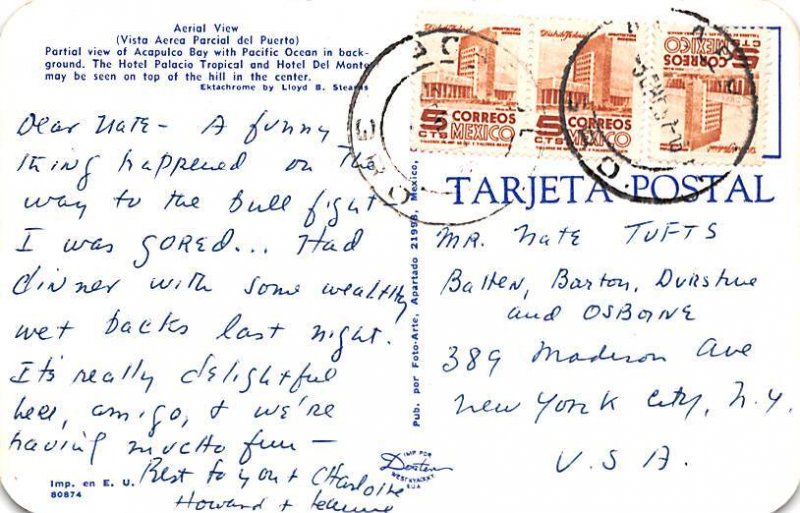 Aerial View
(Vista Aerea Parcial del Puerto)
Partial view of Acapulco Bay with Pacific Ocean in back-
ground. The Hotel Palacio Tropical and Hotel Del Monte
may be seen on top of the hill in the center.
Ektachrome by Lloyd B. Stearns
Dear Nate - A funny
thing happened on the
way to the bull fight
I was GORED... Had
dinner with some wealthy
wet backs last night.
It's really delightful
here, amigo, & we're
having mucho fun —
Best to you & Charlotte
Howard &
Imp. en E. U.
80874
Pub. por Foto-Arte, Apartado 21998, Mexico,
IMP POR
Dexter
WEST NYACK NY
EUA
Distrito Federal
ARQUITECTURA
5 CTS
CORREOS
MEXICO
Distrito Federal
ARQUITECTURA
5 CTS
CORREOS
MEXICO
Distrito Federal
5 CTS
CORREOS
MEXICO
TARJETA POSTAL
MR. Nate TUFTS
Batten, Barton, Durstine
and OSBORNE
389 Madison Ave
New York City, N.Y.
U.S.A.